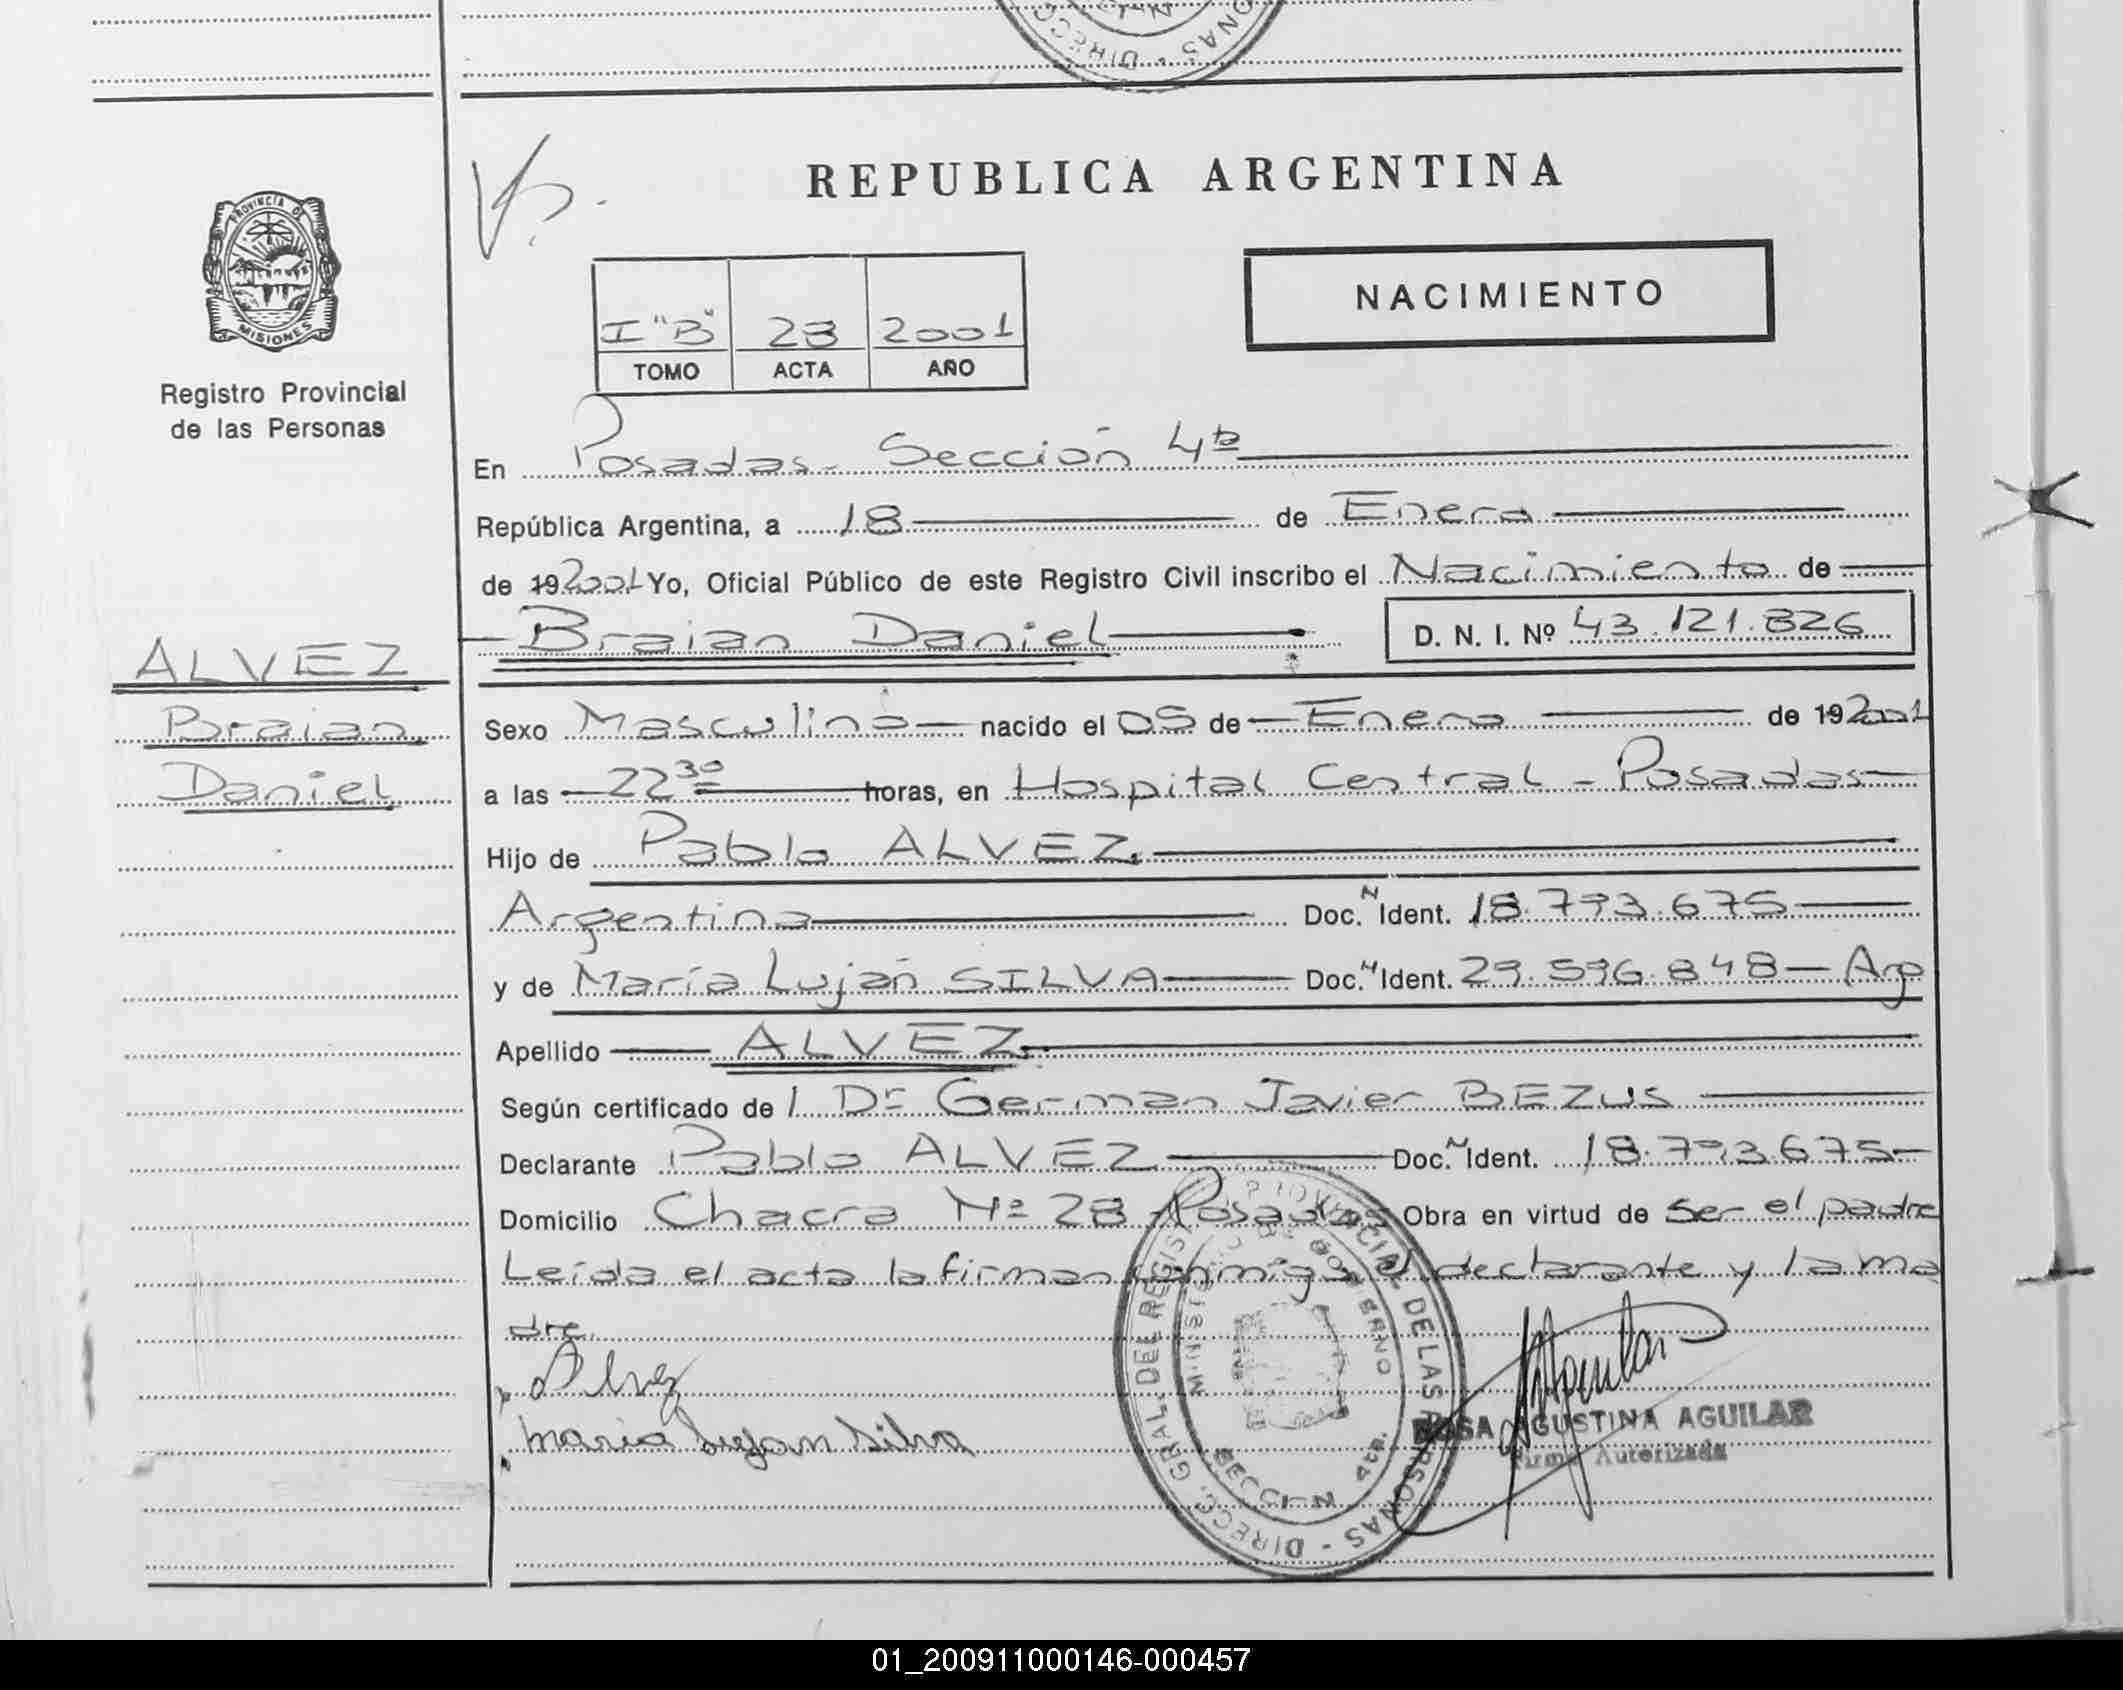 REPUBLICA ARGENTINA
NACIMIENTO
I "B" 23 2001
TOMO ACTA AÑO
PROVINCIA DE
MISIONES
Registro Provincial
de las Personas
En Posadas - Sección 4ta
República Argentina, a 18 de Enero
de 19 2001 Yo, Oficial Público de este Registro Civil inscribo el Nacimiento de
Braian Daniel D. N. I. Nº 43.121.826
ALVEZ
Braian
Daniel
Sexo Masculino nacido el 05 de Enero de 19 2001
a las 22 30 horas, en Hospital Central - Posadas
Hijo de Pablo ALVEZ
Argentina Doc. N Ident. 18.793.675
y de María Luján SILVA Doc. N Ident. 29.596.848 - Arg
Apellido ALVEZ
Según certificado de l Dr German Javier BEZUS
Declarante Pablo ALVEZ Doc. N Ident. 18.793.675
Domicilio Chacra Nº 28 - Posadas Obra en virtud de Ser el padre
Leída el acta la firman conmigo el declarante y la ma
dre.
Alvez
Maria Lujan Silva
DIRECC. GRAL. DEL REGIST. PROVINCIAL DE LAS PERSONAS
MINISTERIO DE GOBIERNO
SECCION 4ta.
ROSA AGUSTINA AGUILAR
Firma Autorizada
01_200911000146-000457